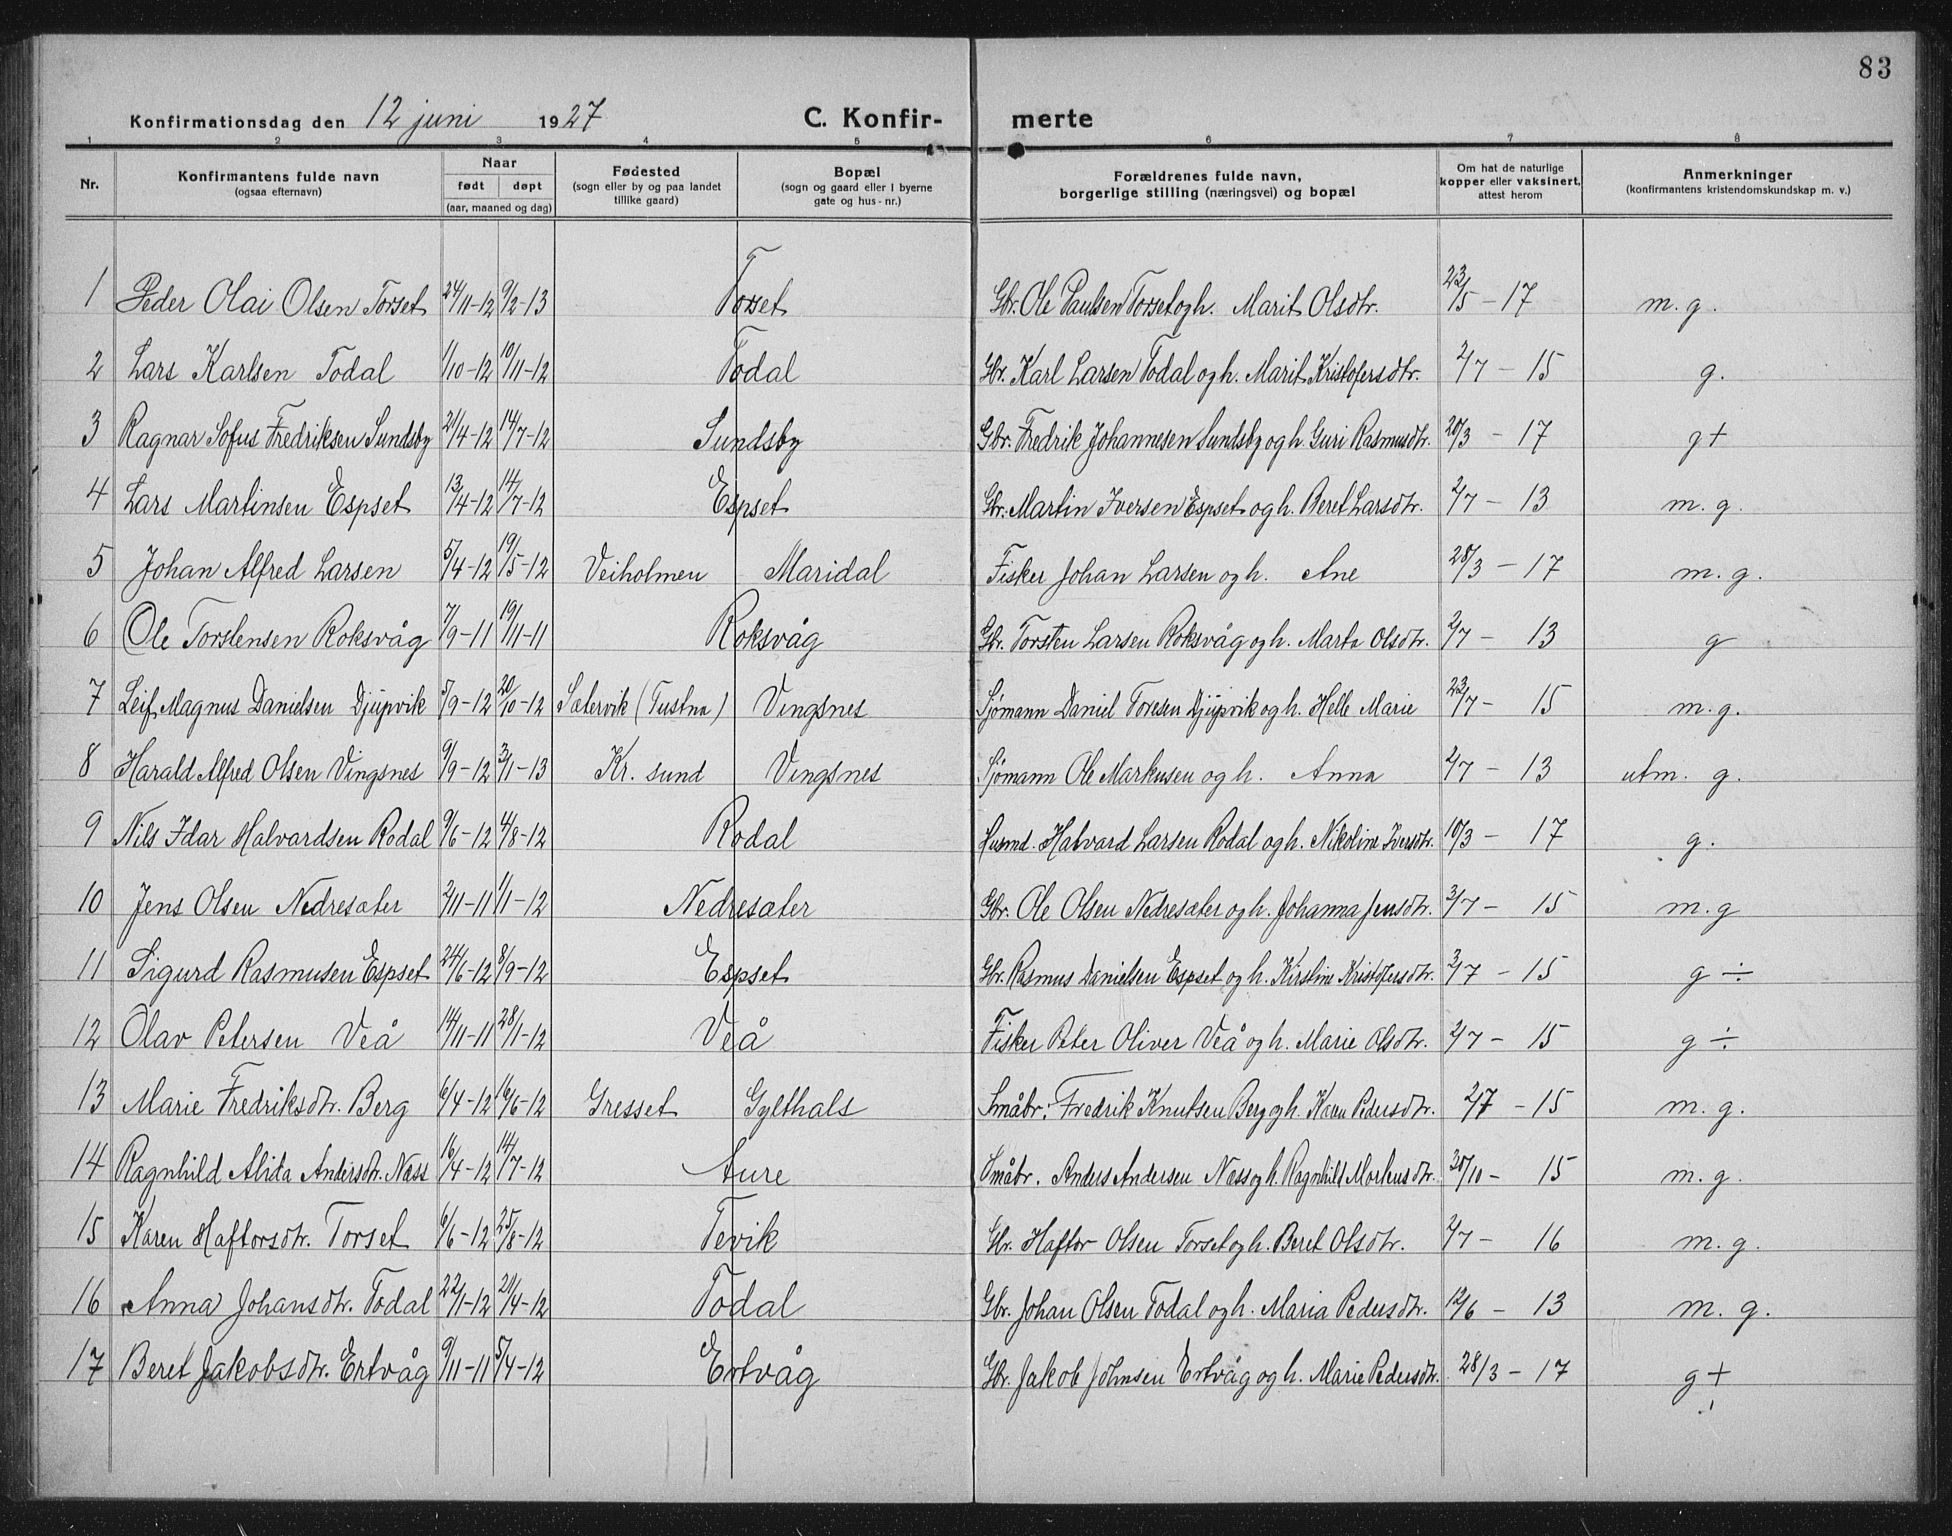 83
Konfirmationsdag den 12 juni 1927 C. Konfir- merte
1 2 3 4 5 6 7 8
Nr. Konfirmantens fulde navn (ogsaa efternavn) Naar født døpt (aar, maaned og dag) Fødested (sogn eller by og paa landet tillike gaard) Bopæl (sogn og gaard eller i byerne gate og hus-nr.) Forældrenes fulde navn, borgerlige stilling (næringsvei) og bopæl Om hat de naturlige kopper eller vaksinert, attest herom Anmerkninger (konfirmantens kristendomskundskap m. v.)
1 Peder Olai Olsen Torset 24/11-12 9/2-13 Torset Gbr. Ole Paulsen Torset og h. Marit Olsdtr. 23/5-17 m. g.
2 Lars Karlsen Todal 1/10-12 10/11-12 Todal Gbr. Karl Larsen Todal og h. Marit Kristofersdtr. 2/7-15 g.
3 Ragnar Sofus Fredriksen Sundsby 21/4-12 14/7-12 Sundsby Gbr. Fredrik Johannesen Sundsby og h. Guri Rasmusdtr. 20/3-17 g+
4 Lars Martinsen Espset 13/4-12 14/7-12 Espset Gbr. Martin Iversen Espset og h. Beret Larsdtr. 2/7-13 m. g.
5 Johan Alfred Larsen 5/4-12 19/5-12 Veiholmen Maridal Fisker Johan Larsen og h. Ane 28/3-17 m. g.
6 Ole Torstensen Roksvåg 7/9-11 19/11-11 Roksvåg Gbr. Torsten Larsen Roksvåg og h. Marta Olsdtr. 2/7-13 g
7 Leif Magnus Danielsen Djupvik 5/9-12 20/10-12 Sætervik (Tustna) Vingsnes Sjømann Daniel Toresen Djupvik og h. Helle Marie 23/7-15 m. g.
8 Harald Alfred Olsen Vingsnes 9/9-12 3/1-13 Kr. sund Vingsnes Sjømann Ole Markusen og h. Anna 2/7-13 utm. g.
9 Nils Idar Halvardsen Rodal 9/6-12 4/8-12 Rodal Husmd. Halvard Larsen Rodal og h. Nikoline Iversdtr. 10/3-17 g.
10 Jens Olsen Nedresæter 2/11-11 1/1-12 Nedresæter Gbr. Ole Olsen Nedresæter og h. Johanna Jensdtr. 3/7-15 m. g
11 Sigurd Rasmusen Espset 24/6-12 8/9-12 Espset Gbr. Rasmus Danielsen Espset og h. Kirstine Kristofersdtr. 3/7-15 g ÷
12 Olav Petersen Veå 14/11-11 28/1-12 Veå Fisker Peter Oliver Veå og h. Marie Olsdtr. 2/7-15 g ÷
13 Marie Fredriksdtr. Berg 6/4-12 16/6-12 Gresset Gylthals Småbr. Fredrik Knutsen Berg og h. Karen Pedersdtr. 2/7-15 m. g.
14 Ragnhild Alida Andersdtr. Næss 16/4-12 14/7-12 Aure Småbr. Anders Andersen Næss og h. Ragnhild Markusdtr. 30/10-15 m. g.
15 Karen Haftorsdtr. Torset 6/6-12 25/8-12 Tevik Gbr. Haftor Olsen Torset og h. Beret Olsdtr. 2/7-16 m. g.
16 Anna Johansdtr. Todal 22/1-12 21/4-12 Todal Gbr. Johan Olsen Todal og h. Maria Pedersdtr. 12/6-13 m. g.
17 Beret Jakobsdtr. Ertvåg 9/11-11 5/4-12 Ertvåg Gbr. Jakob Johnsen Ertvåg og h. Marie Pedersdtr. 28/3-17 g +